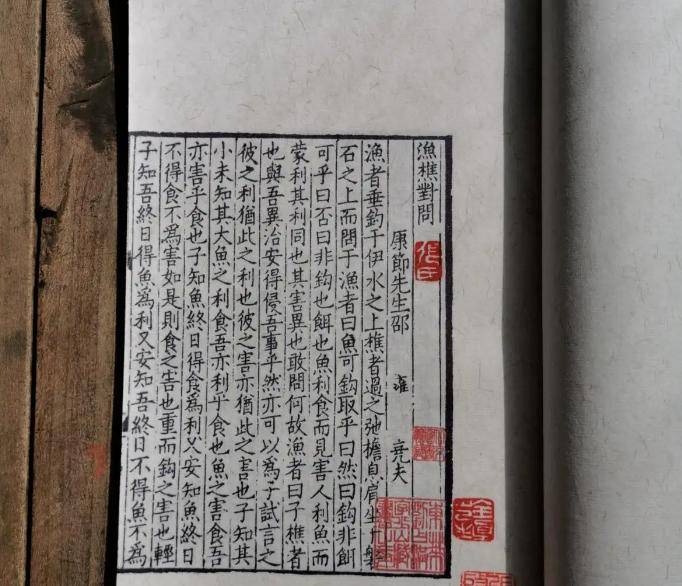 漁樵對問
張氏
康節先生邵 雍 堯夫
漁者垂鈎于伊水之上樵者過之弛檐息肩坐于磐
石之上而問于漁者曰魚可鈎取乎曰然曰鈎非餌
可乎曰否曰非鈎也餌也魚利食而見害人利魚而
蒙利其利同也其害異也敢問何故漁者曰子樵者
也與吾異治安得侵吾事乎然亦可以為子試言之
彼之利猶此之利也彼之害亦猶此之害也子知其
小未知其大魚之利食吾亦利乎食也魚之害食吾
亦害乎食也子知魚終日得食爲利又安知魚終日
不得食不爲害如是則食之害也重而鈎之害也輕
子知吾終日得魚爲利又安知吾終日不得魚不爲